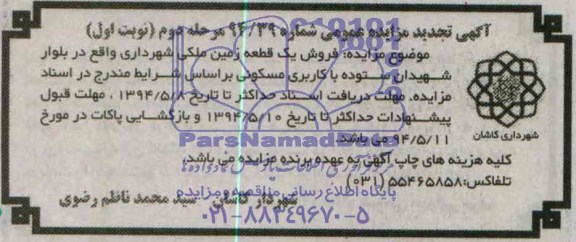 آگهی تجدید مزایده عمومی شماره ۹۴/۳۹ مرحله دوم (نوبت اول)
موضوع مزایده: فروش یک قطعه زمین ملکی شهرداری واقع در بلوار
شهیدان ستوده با کاربری مسکونی براساس شرایط مندرج در اسناد
مزایده. مهلت دریافت اسناد حداکثر تا تاریخ ۱۳۹۴/۵/۸ ، مهلت قبول
پیشنهادات حداکثر تا تاریخ ۱۳۹۴/۵/۱۰ و بازگشایی پاکات در مورخ
۹۴/۵/۱۱ می باشد.
کلیه هزینه های چاپ آگهی به عهده برنده مزایده می باشد.
تلفاکس: ۵۵۴۶۵۸۵۸ (۰۳۱)
شهردار کاشان - سید محمد ناظم رضوی
شهرداری کاشان
ParsNamadData
پایگاه اطلاع رسانی مناقصه و مزایده
۰۲۱-۸۸۳۴۹۶۷۰-۵